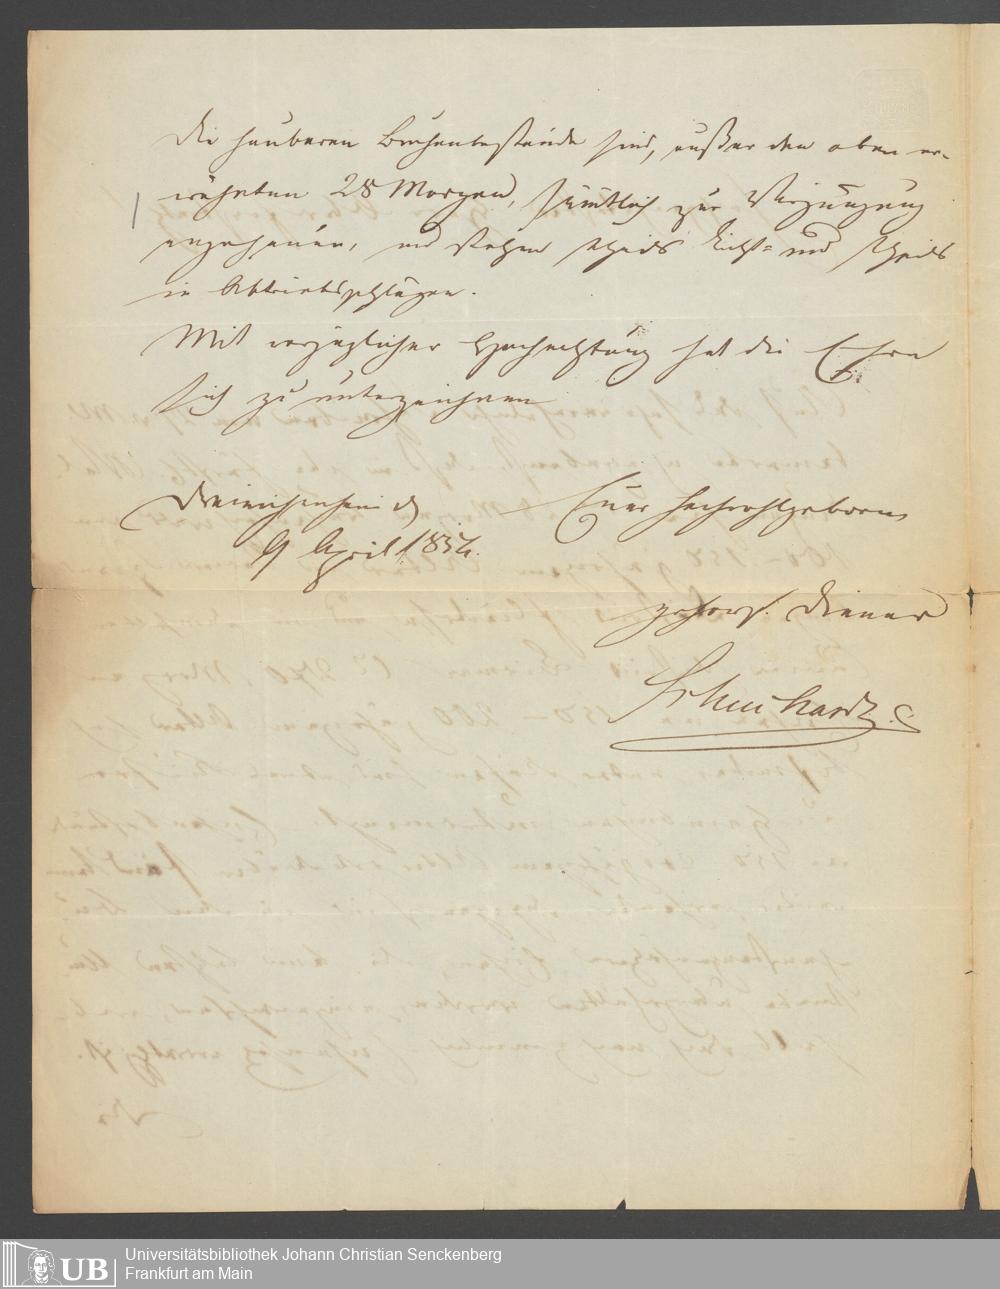 die haubaren Buchenbestände sind, außer den oben er-
wähnten 28 Morgen, sämtlich zur Verjüngung
angehauen, und stehen theils Licht- und theils
in Abtriebsschlägen.
Mit vorzüglicher Hochachtung hat die Ehre
sich zu unterzeichnen
Dreieichenhain d
9 April 1832.
Euer Hochwohlgeboren
gehors. Diener
Universitätsbibliothek Johann Christian Senckenberg
Frankfurt am Main
UB